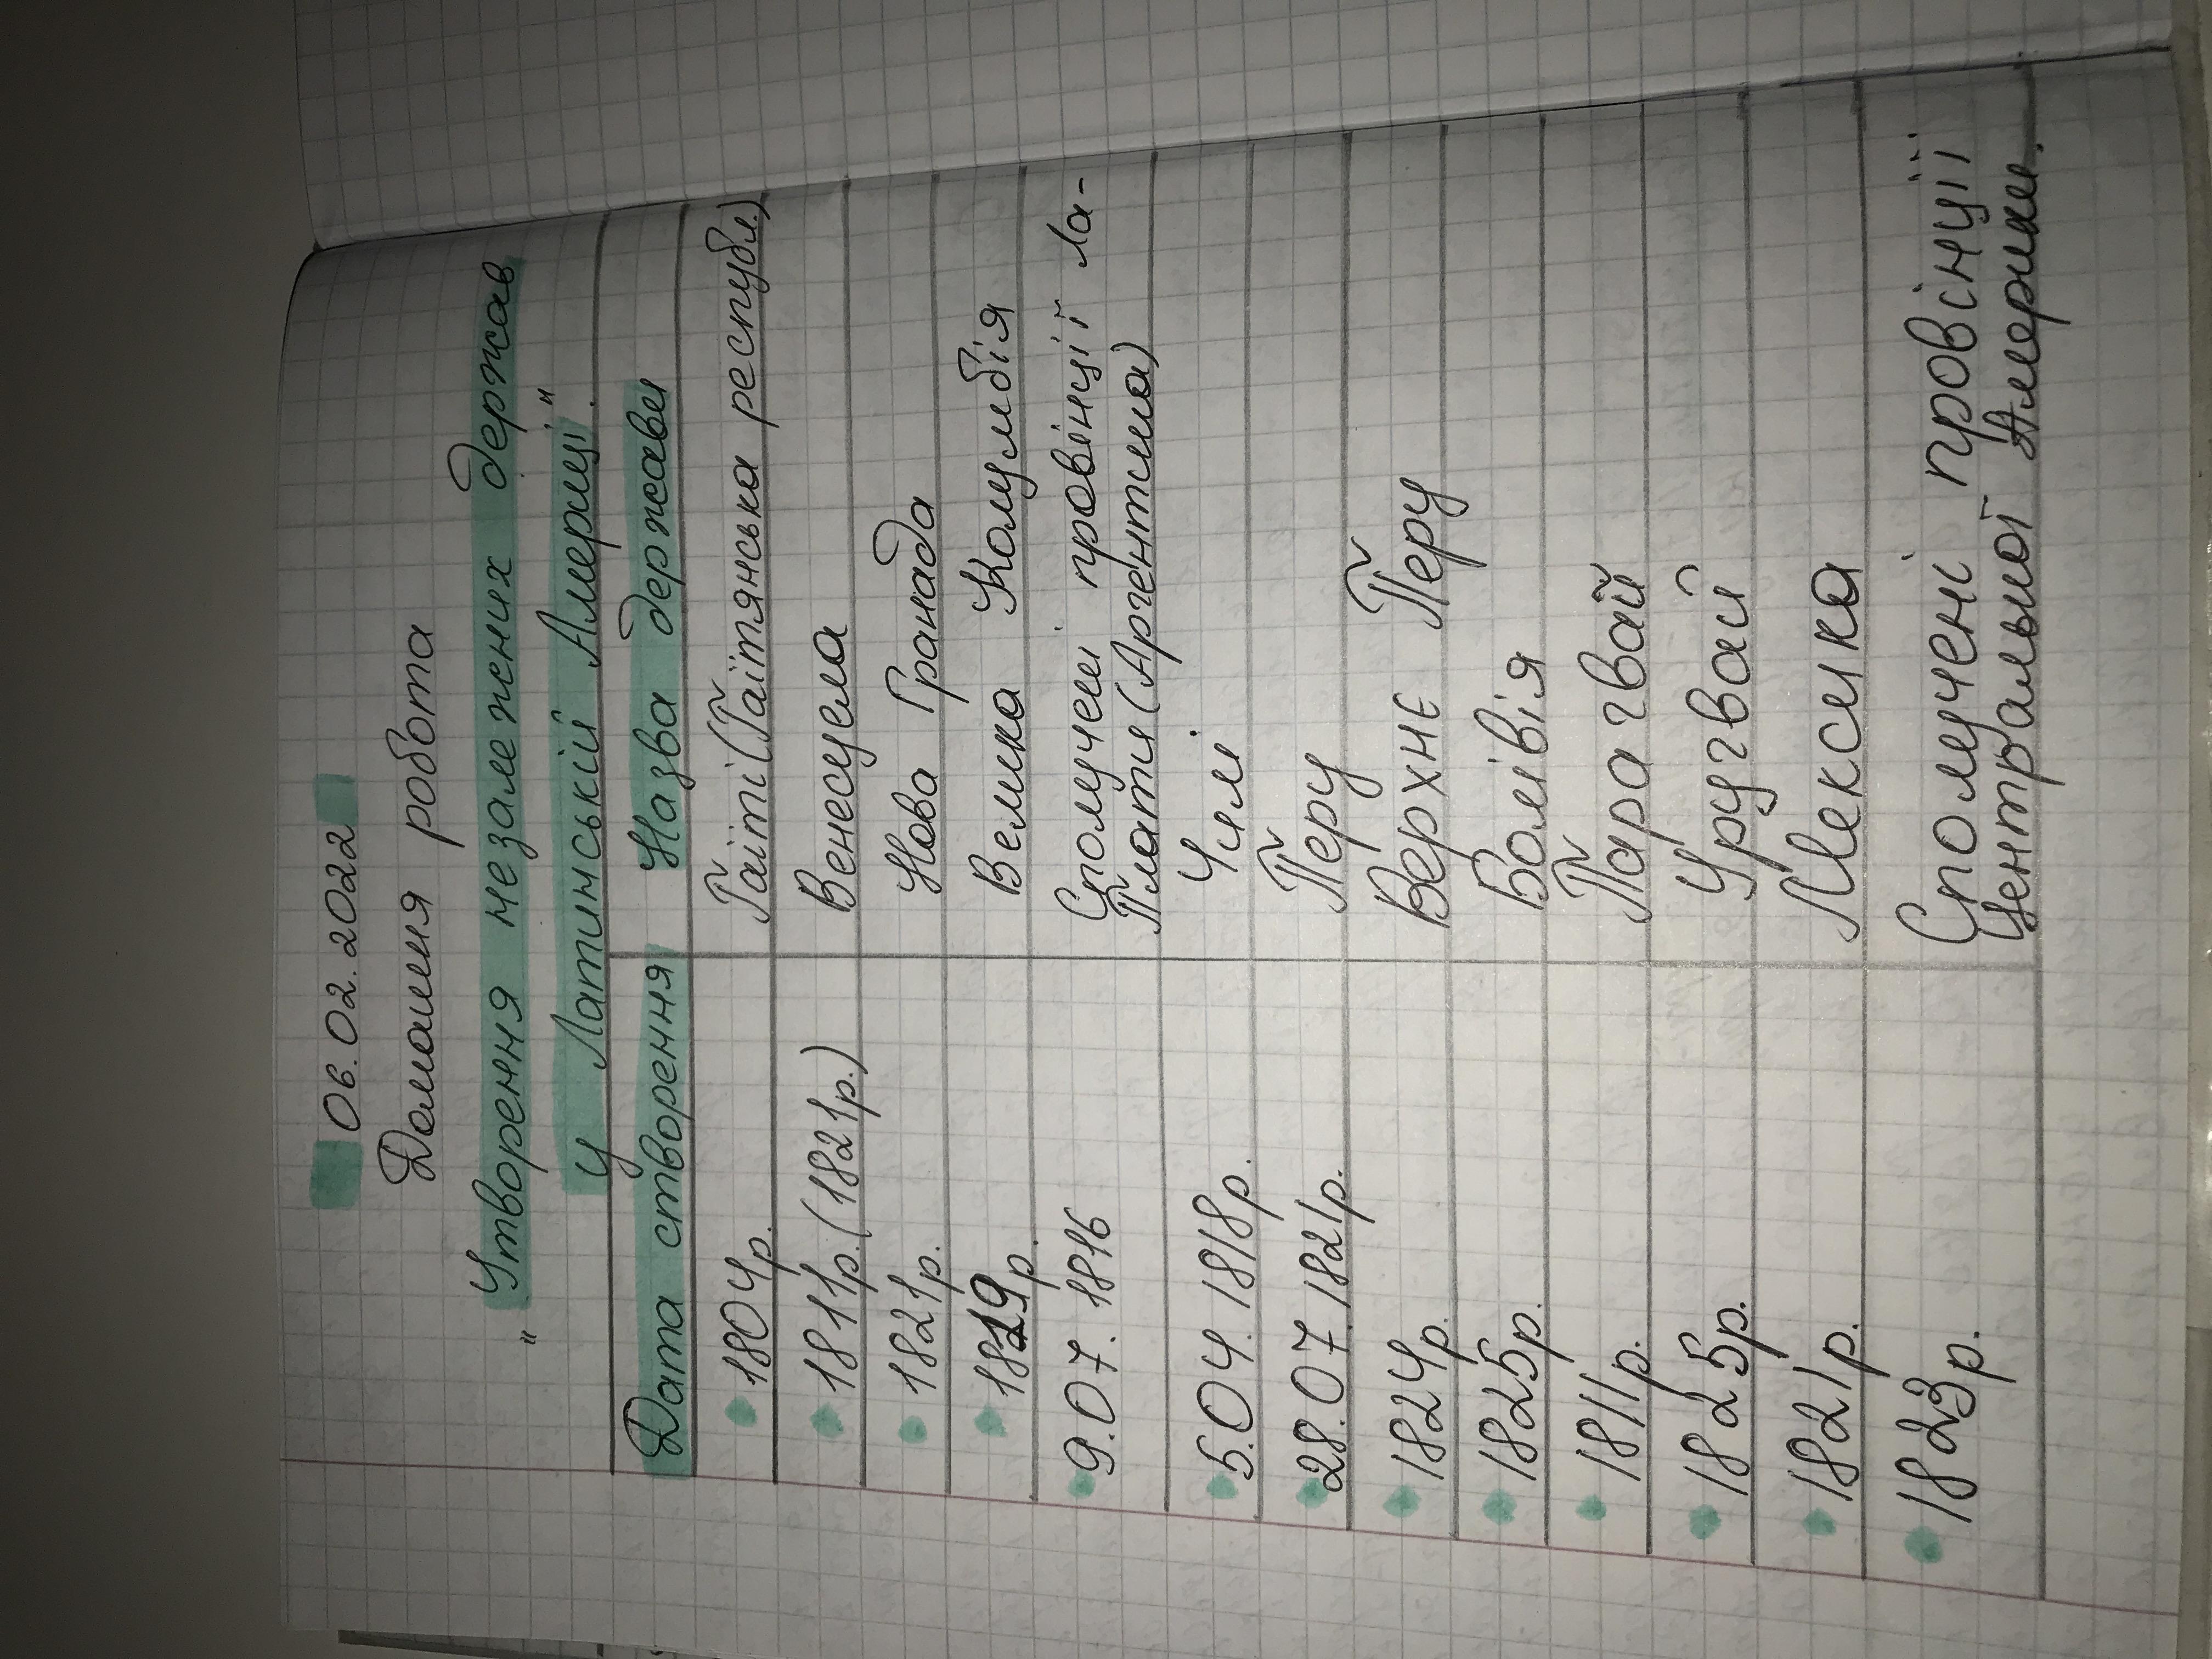 06.02.2022
Домашня робота
"Утворення незалежних держав
у Латинській Америці".
Дата створення Назва держави
1804р. Гаїті (Гаїтянська республ.)
1811р. (1821р.) Венесуела
1821р. Нова Гранада
1819р. Велика Колумбія
9.07.1816 Сполучені провінції Ла-
Плати (Аргентина)
5.04.1818р. Чилі
28.07.1821р. Перу
1824р. Верхнє Перу
1825р. Болівія
1811р. Парагвай
1825р. Уругвай
1821р. Мексика
1823р. Сполучені провінції
Центральної Америки.